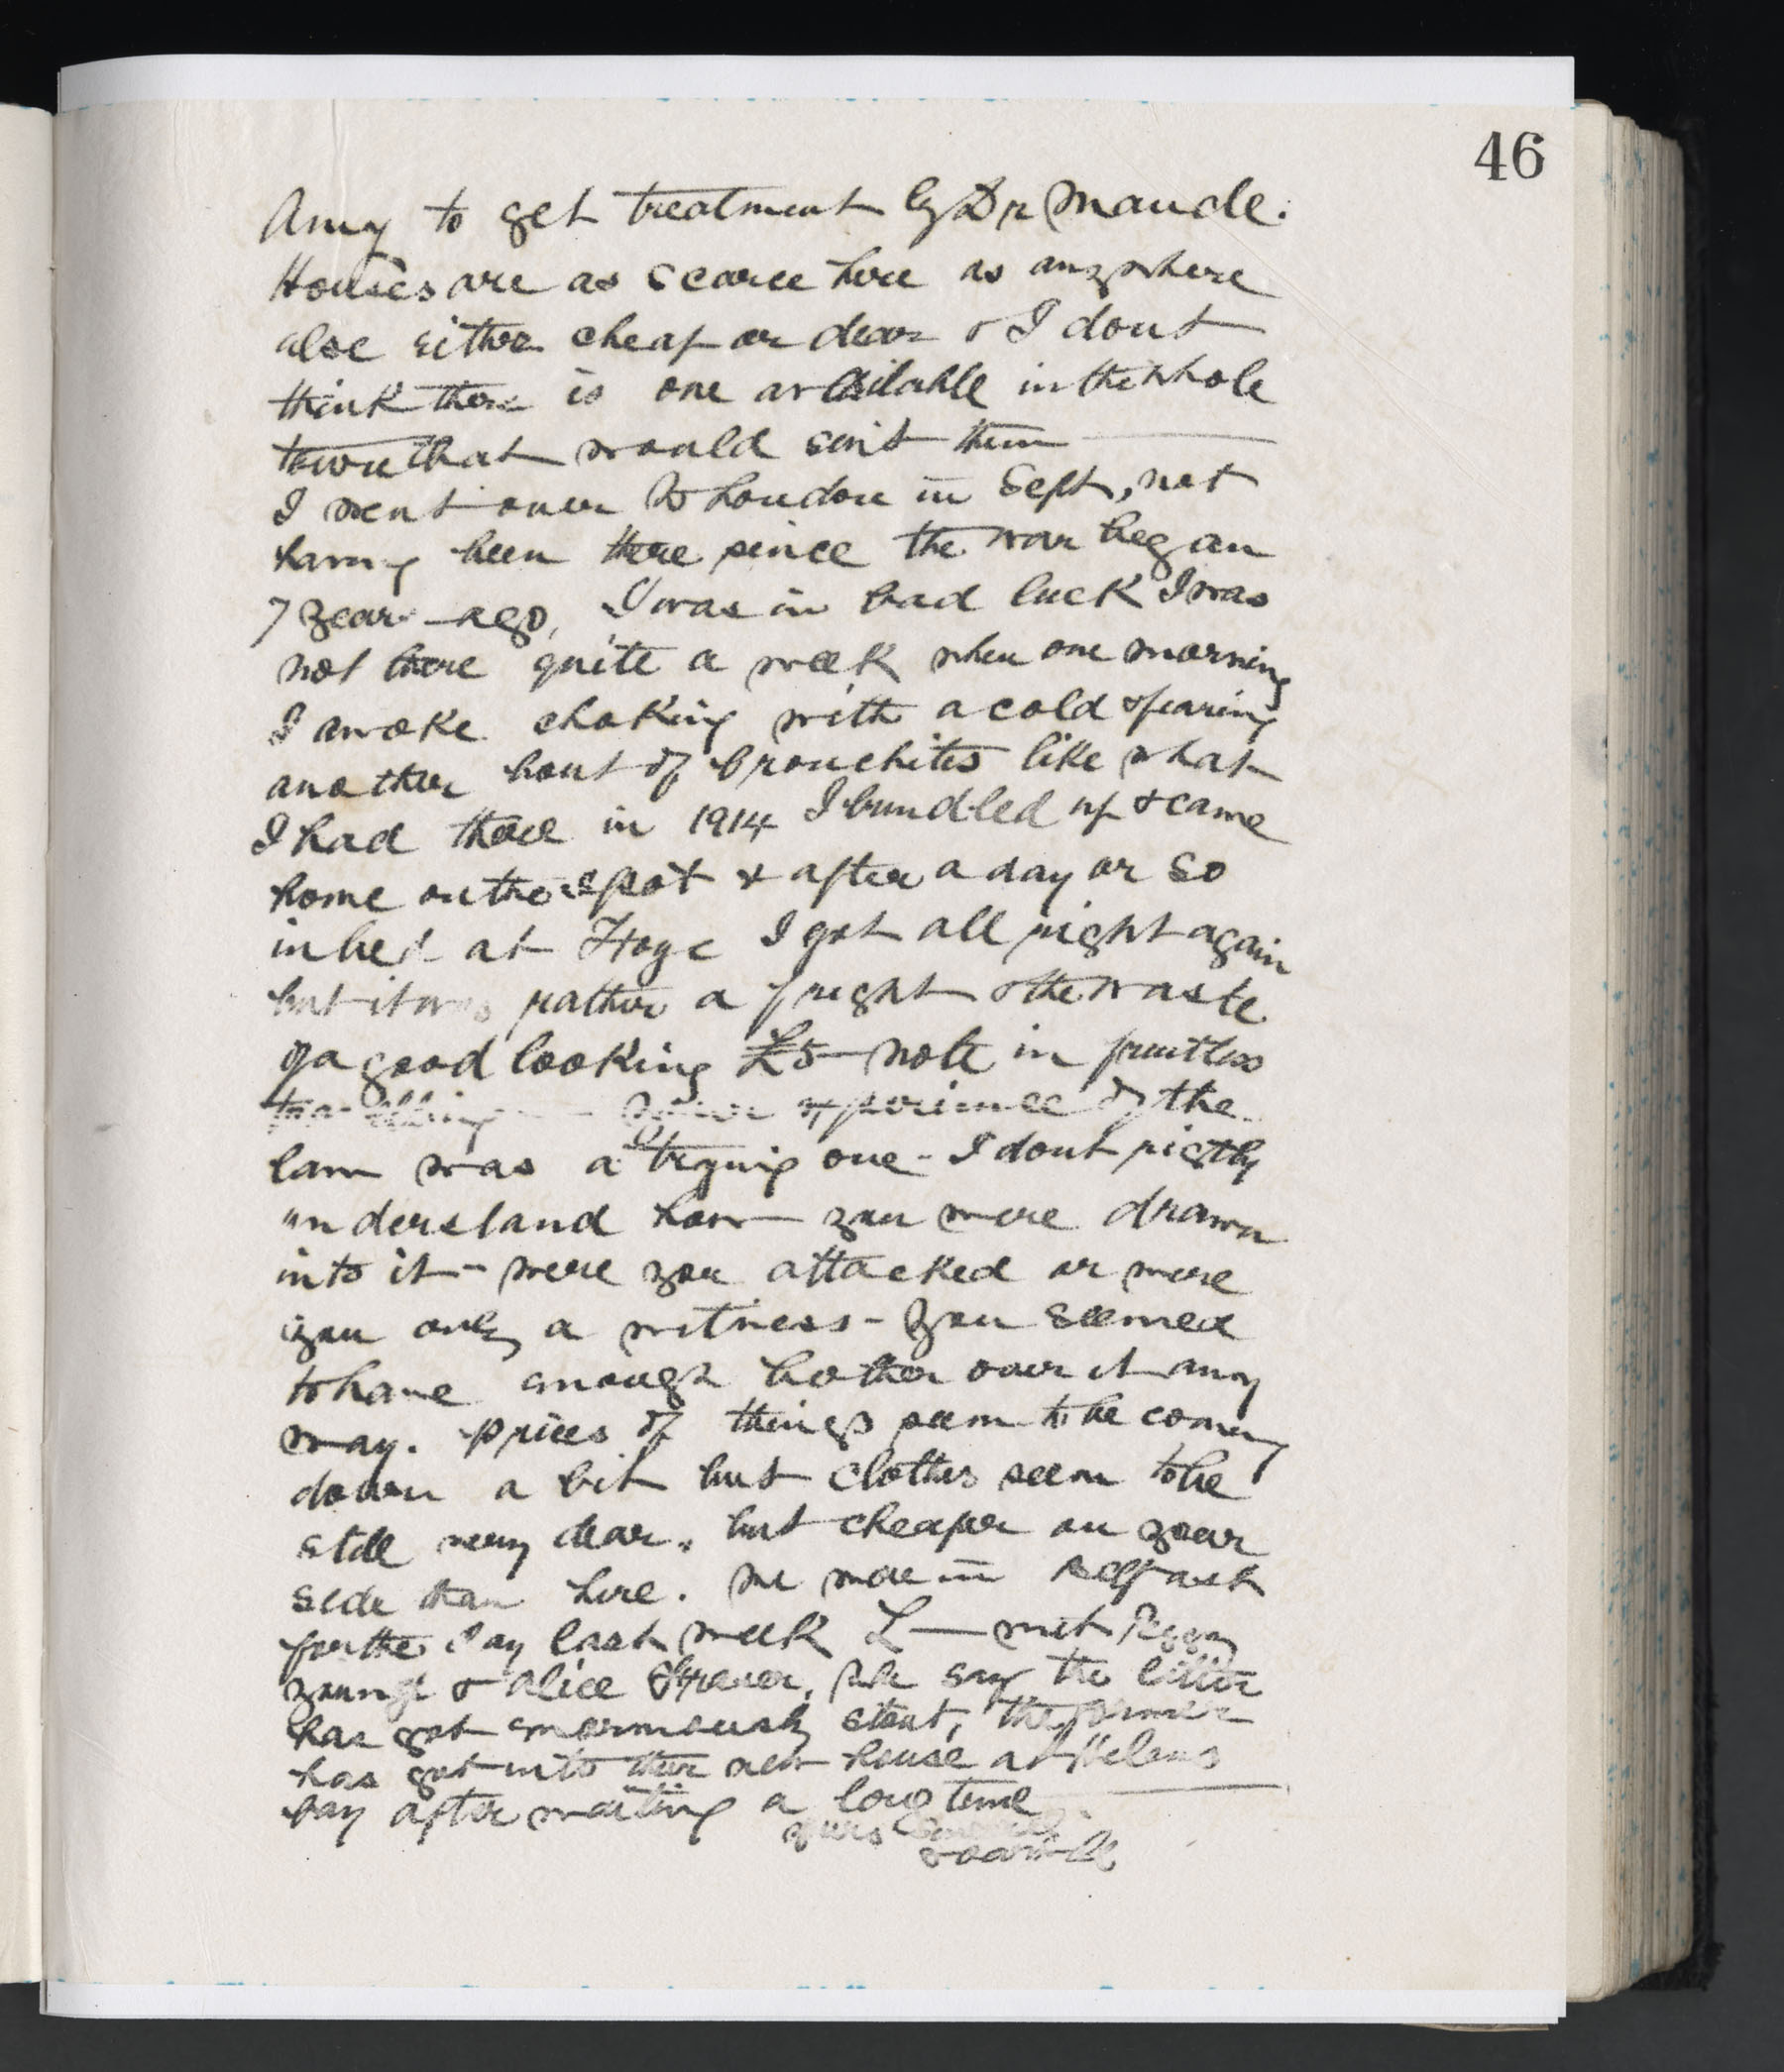 46
Amy to get treatment by Dr Maude.
Houses are as scarce here as anywhere
else either cheap or dear & I dont
think there is one available in the whole
town that would suit them
I went over to London in Sept, not
having been there since the war began
7 years ago, I was in bad luck I was
not there quite a week when one morning
I awoke choking with a cold & fearing
another bout of bronchites like what
I had there in 1914 I bundled up & came
home on the spot & after a day or so
in bed at Hoge I got all right again
but it was rather a fright & the waste
of a good looking £5 note in fruitless
travelling — Your experience of the
law was a trying one - I dont rightly
understand how you were drawn
into it - were you attacked or were
you only a witness - You seemed
to have enough bother over it any
way. Prices of things seem to be coming
down a bit but clothes seem to be
still very dear, but cheaper on your
side than here. We were in Belfast
for the day last week L— met Peggy
Young & Alice Greer, she say the latter
has got enormously stout, the former
has got into their new house at Helens
Bay after waiting a long time.
Yours